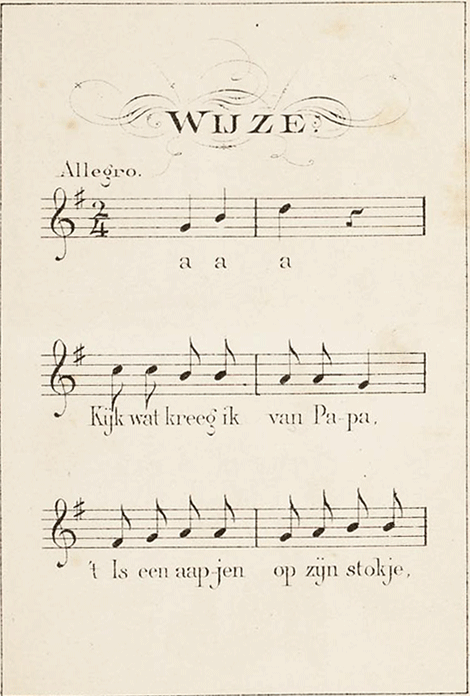 WIJZE:
Allegro.
2
4
a a a
Kijk wat kreeg ik van Pa-pa,
't Is een aap-jen op zijn stokje,